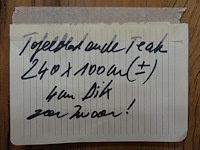 Tafelblad oude Teak
240 x 100 cm (±)
4 cm Dik
zeer zwaar!